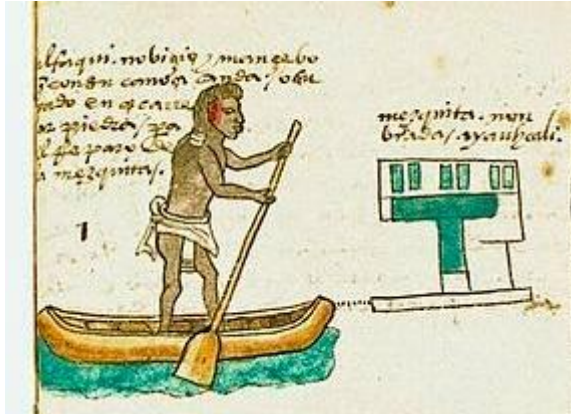 lfaqui. nobiçio y mançebo
q con su canoa anda / ocu
pado en acarre
ar piedra / pa
de
a mezquitas.
mezquita. non
brada. ayauhcali.